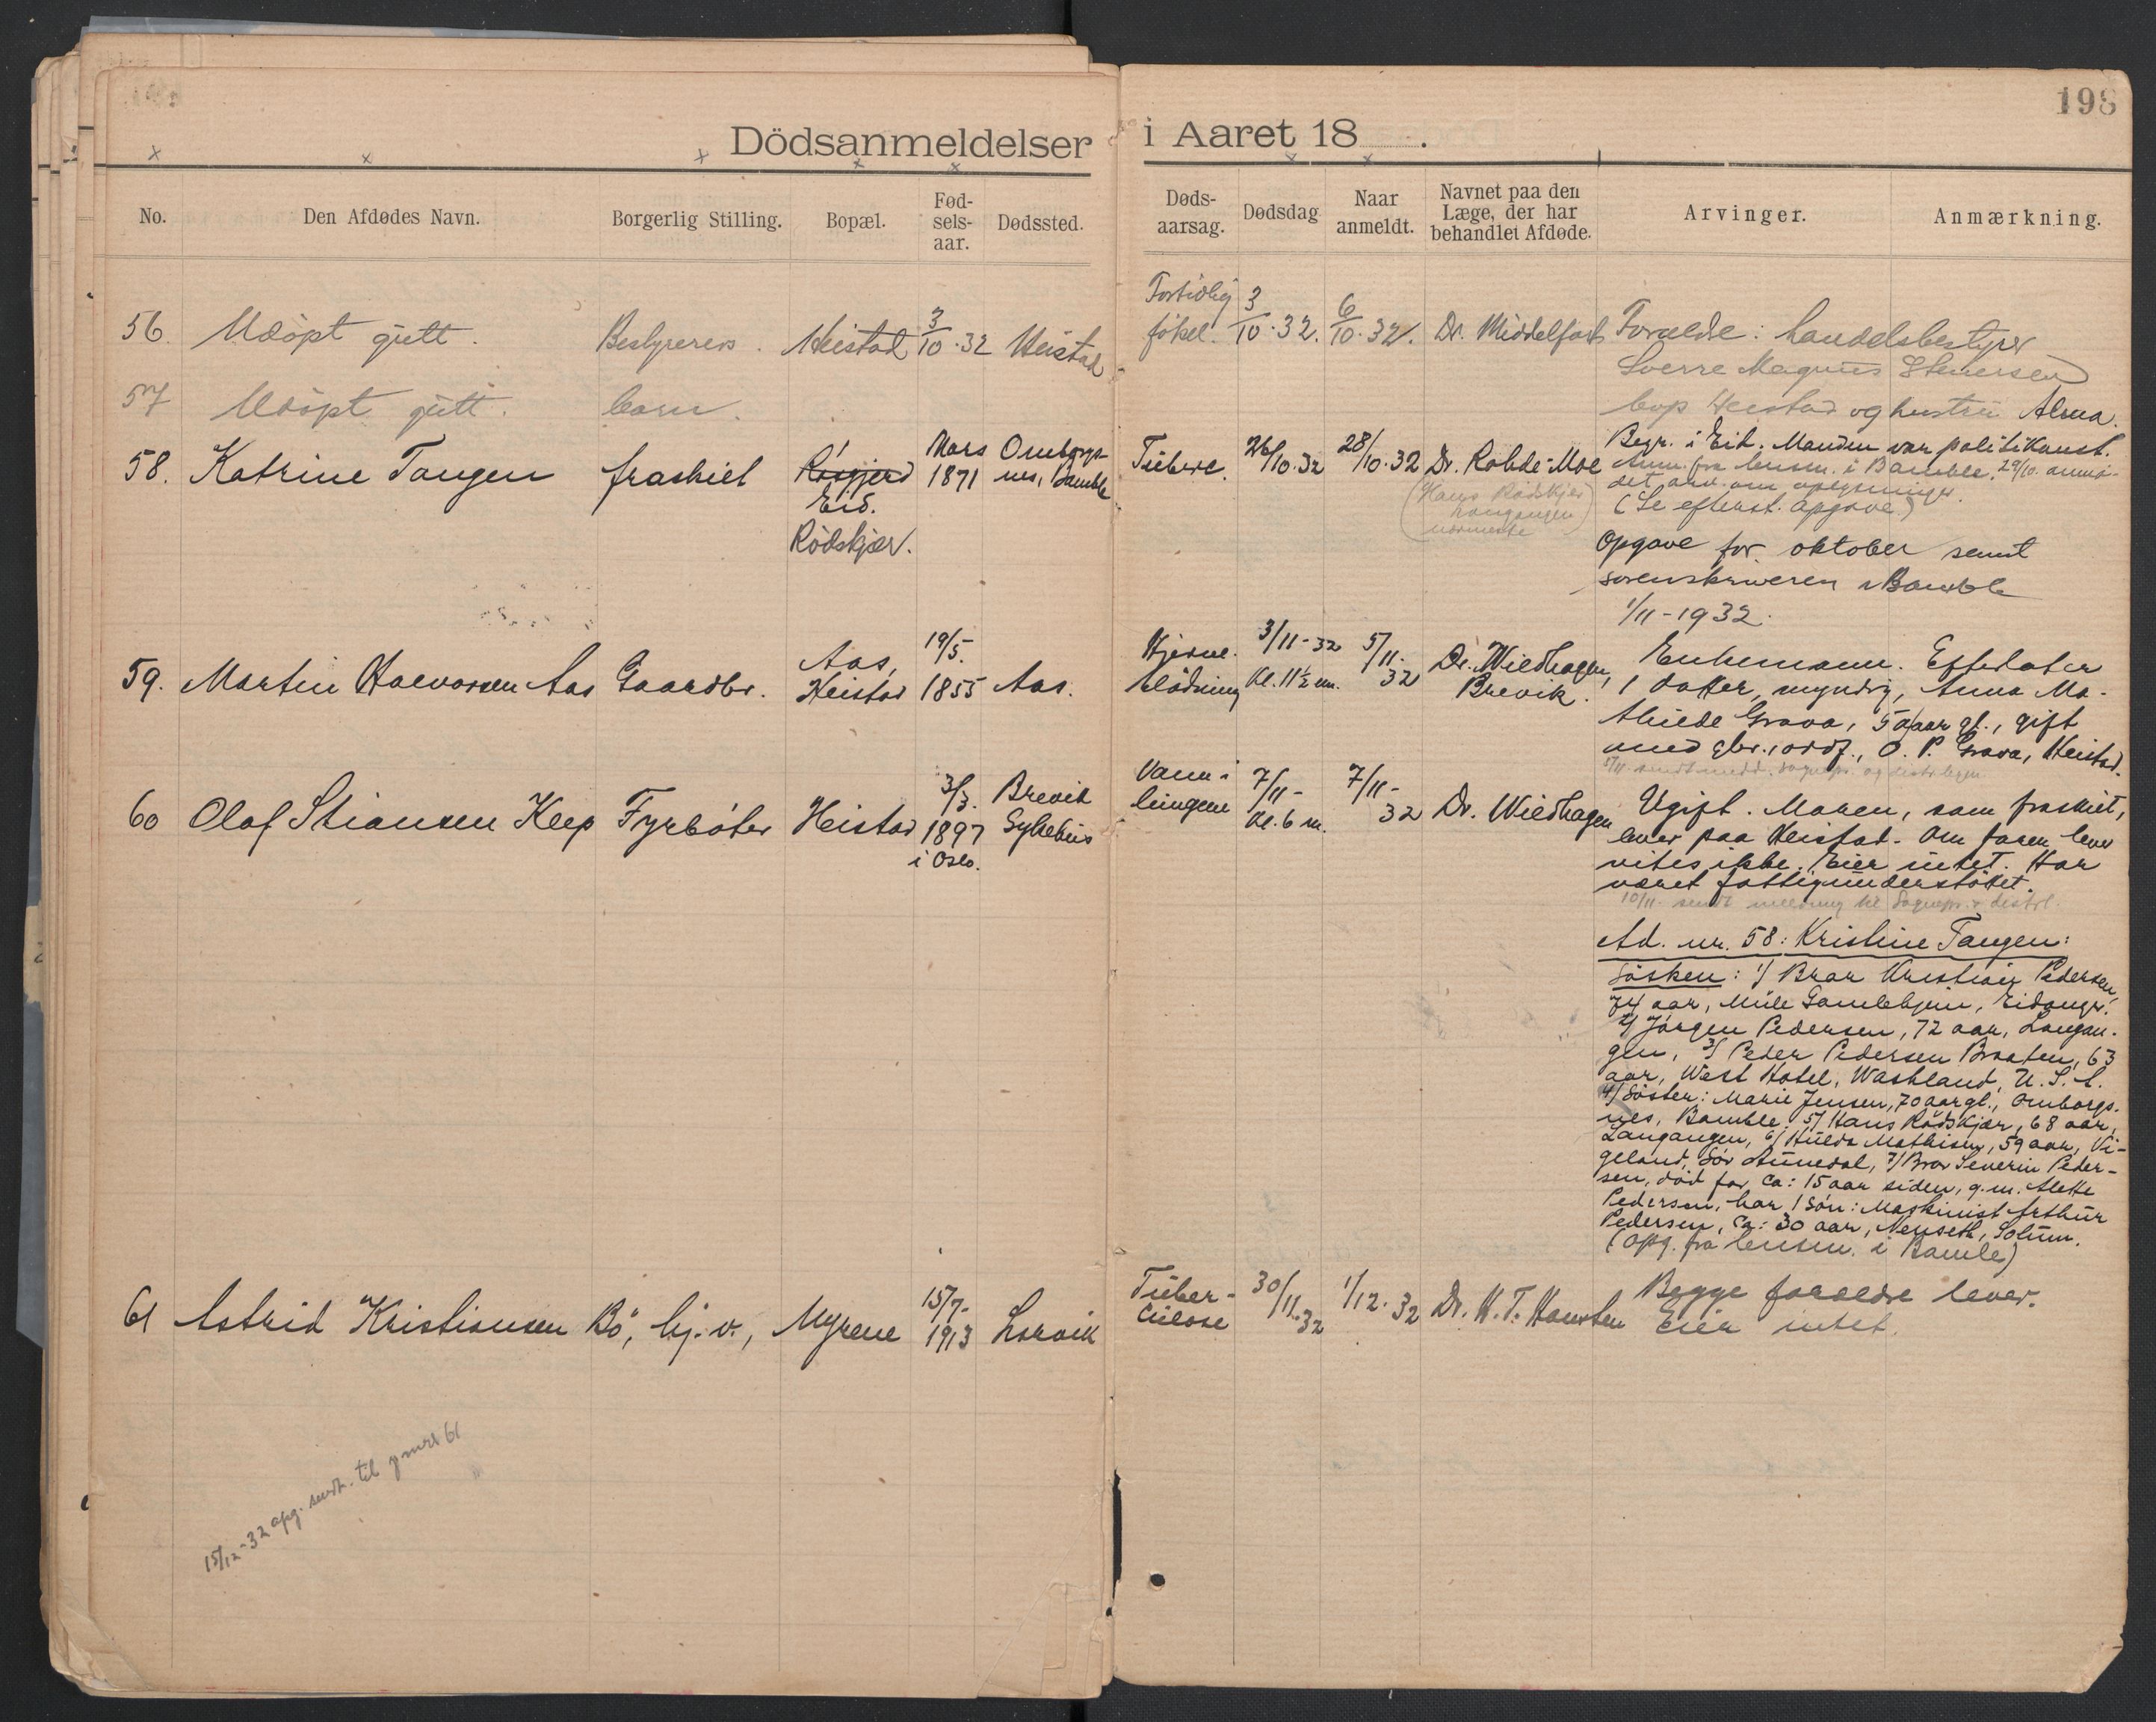 198
Dödsanmeldelser i Aaret 18 .
No.
Den Afdødes Navn.
Borgerlig Stilling.
Bopæl.
Fød-
sels-
aar.
Dødssted.
Døds-
aarsag.
Dødsdag
Naar
anmeldt.
Navnet paa den
Læge, der har
behandlet Afdøde.
Arvinger.
Anmærkning.
56. Udöpt gutt. Bestyrerens. Heistad 3/10.32 Heistad
Fortidlig
fødsel. 3/10.32. 6/10.32. Dr. Middelfart
Forældre: handelsbestyrer
Sverre Magnus Stenersen
bop Heistad og hustru Alma.
57 Udöpt gutt. barn.
58. Katrine Tangen fraskilt
Eid.
Rödskjær.
Mars
1871
Omborgs-
nes, Bamble
Tuberc. 26/10.32 28/10.32 Dr. Rohde-Moe
(Hans Rödskjær
Langangen
nærmeste)
Begr. i Eid. Manden var politikonst.
Anm. fra lensm. i Bamble. 29/10. anmo-
det om oplysninger.
(Se efterst. opgave)
Opgave for oktober sendt
sorenskriveren i Bamble
1/11-1932.
59. Martin Halvorsen Aas Gaardbr. Aas,
Heistad
19/5.
1855 Aas.
Hjerne-
blödning
3/11-32
kl. 11½ em.
5/11.
32
Dr. Wiedhagen,
Brevik.
Enkemann. Efterlater
1 datter, myndig, Anna Ma-
thilde Grava, 50 aar gl., gift
med gbr., ordf., O. P. Grava, Heistad.
5/11 sendt medd. sognepr. og distr.legen
60 Olaf Stiansen Keep Fyrböter Heistad
3/3.
1897
i Oslo.
Brevik
Sykehus
Vann i
lungene
7/11-
kl. 6 m.
7/11-
32 Dr. Wiedhagen
Ugift. Moren, som fraskilt,
lever paa Heistad. Om faren lever
vites ikke. Eier intet. Har
været fattigunderstöttet.
10/11. sendt melding til Sognepr. & distrl.
Ad. nr. 58: Kristine Tangen:
Søsken: 1/ Bror Kristian Pedersen,
74 aar, Mule Gamlehjem, Eidanger.
2/ Jörgen Pedersen, 72 aar, Langan-
gen, 3/ Peder Pedersen Braaten, 63
aar, West Hotel, Washland, U.S.A.
4/ Söster: Marie Jensen, 70 aar gl., Omborgs-
nes, Bamble. 5/ Hans Rødskjær, 68 aar,
Langangen, 6/ Hulda Mathisen, 59 aar, Vi-
geland, Sör Audnedal, 7/ Bror Severin Peder-
sen, död for ca: 15 aar siden, g.m. Alette
Pedersen, har 1 sön: Maskinist Arthur
Pedersen, ca: 30 aar, Nenseth, Solum.
(Opg. fra lensm. i Bamle)
61 Astrid Kristiansen Bö, hj. v., Myrene
15/7-
1913 Larvik
Tuber-
culose
30/11.32 1/12.32 Dr. K. T. Hamsten
Begge foreldre lever.
Eier intet.
15/12-32 opg. sendt. til